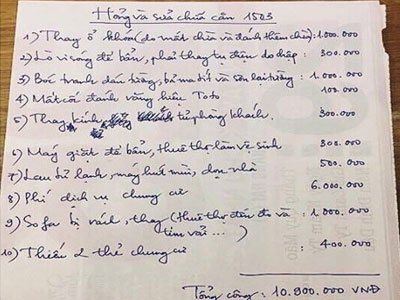 Hỏng và sửa chữa căn 1503
1) Thay ổ khoá (do mất chìa và đánh thêm chìa): 1.000.000
2) Lò vi sóng để bẩn, phải thay tụ điện do chập : 300.000
3) Bôi tranh dán tường, bả ma tít và sơn lại tường : 1.000.000
4) Mất cái đánh vàng hiệu Toto 100.000
5) Thay kính tủ phòng khách. 300.000
6) Máy giặt để bẩn, thuê thợ làm vệ sinh 300.000
7) Lau tủ lạnh, máy hút mùi, dọn nhà 500.000
8) Phí dịch vụ chung cư 6.000.000
9) Sofa bị rách, thay (thuê thợ đến đo và : 1.000.000
tìm vải ...)
10) Thiếu 2 thẻ chung cư : 400.000
Tổng cộng : 10.900.000 VNĐ